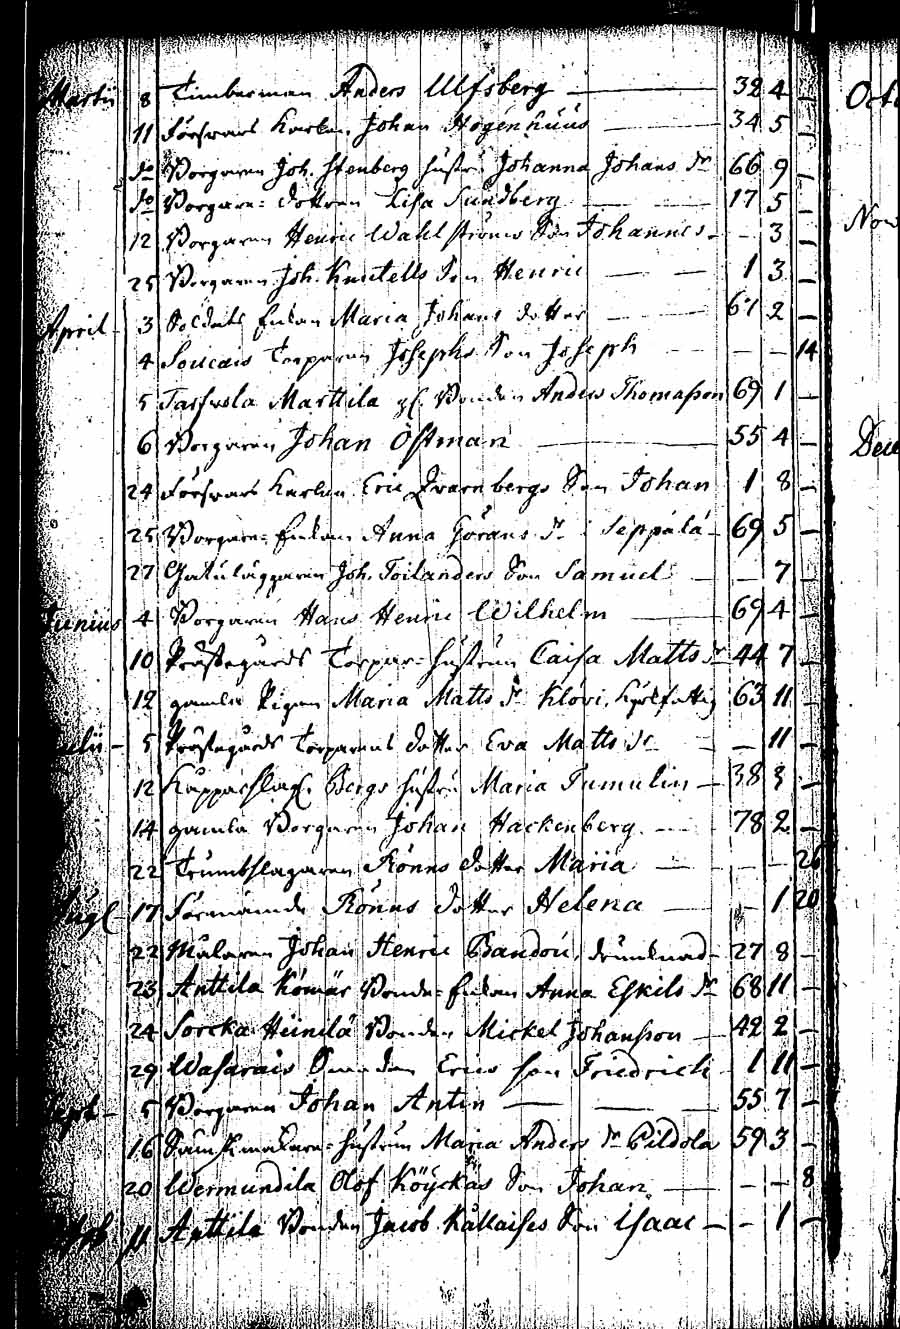 Martii 8 Timberman Anders Ulfsberg 32 4 —
11 Försvars Karlen Johan Högenhuus 34 5 —
do Borgaren Joh. Stenberg hustru Johanna Johans Dr 66 9 —
do Borgare- dottren Lisa Sundberg 17 5 —
12 Borgaren Henric Wahlströms Son Johannes — 3 —
25 Borgaren Joh. Knutells Son Henric 1 3 —
April 3 Soldats Enkan Maria Johans dotter 67 2 —
4 Soucais Torparen Josephs Son Joseph — — 14
5 Tarfvola Marttila Bonden Anders Thomasson 69 1 —
6 Borgaren Johan Östman 55 4 —
24 Försvars Karlen Eric Qvarnbergs Son Johan 1 8 —
25 Borgare- Enkan Anna Görans Dr i Seppälä 69 5 —
27 Gatuläggaren Joh. Toilanders Son Samuel — 7 —
Junius 4 Borgaren Hans Henric Wilhelm 69 4 —
10 Prästegårds Torpar- hustrun Caisa Matts Dr 44 7 —
12 gamla Pigan Maria Matts Dr Klövi, 63 11 —
5 Prästegårds Torparens dotter Eva Matts Dr — 11 —
12 Kopparslag. Bergs hustru Maria Tumulin 38 3 —
14 gamla Borgaren Johan Hackenberg 78 2 —
22 Trumbslagaren Rönns dotter Maria — — 26
Aug 17 Förenämnde Rönns dotter Helena — 1 20
22 Målaren Johan Henric drunknad 27 8 —
23 Anttila Kömär Bonde- Enkan Anna Eskils Dr 68 11 —
24 Sorcka Heinilä Bonden Mickel Johansson 42 2 —
29 Wasarais Erics son Friedrich 1 11 —
Sept 5 Borgaren Johan Antin 55 7 —
16 hustrun Maria Anders Dr Pildola 59 3 —
20 Wermundila Olof Köyckäs Son Johan — — 8
11 Anttila Bonden Jacob Kallaises Son Isaac — 1 —
Octo
Nov
Dece